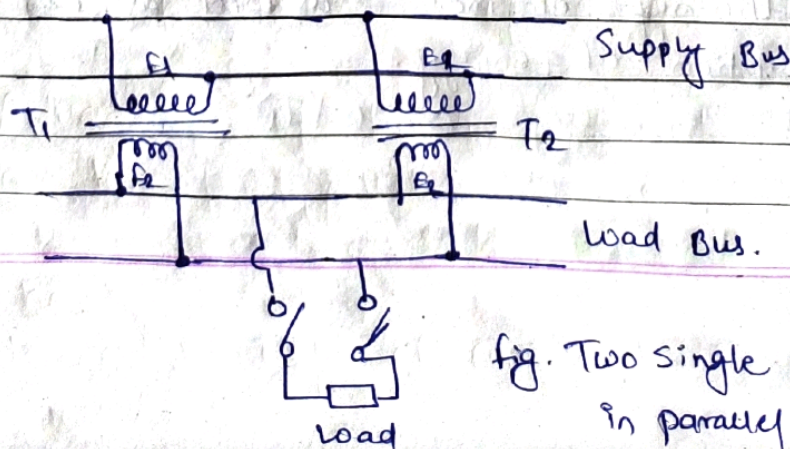 Supply Bus
E1
E1
T1
T2
E2
E2
Load Bus.
fig. Two Single
in parallel
Load